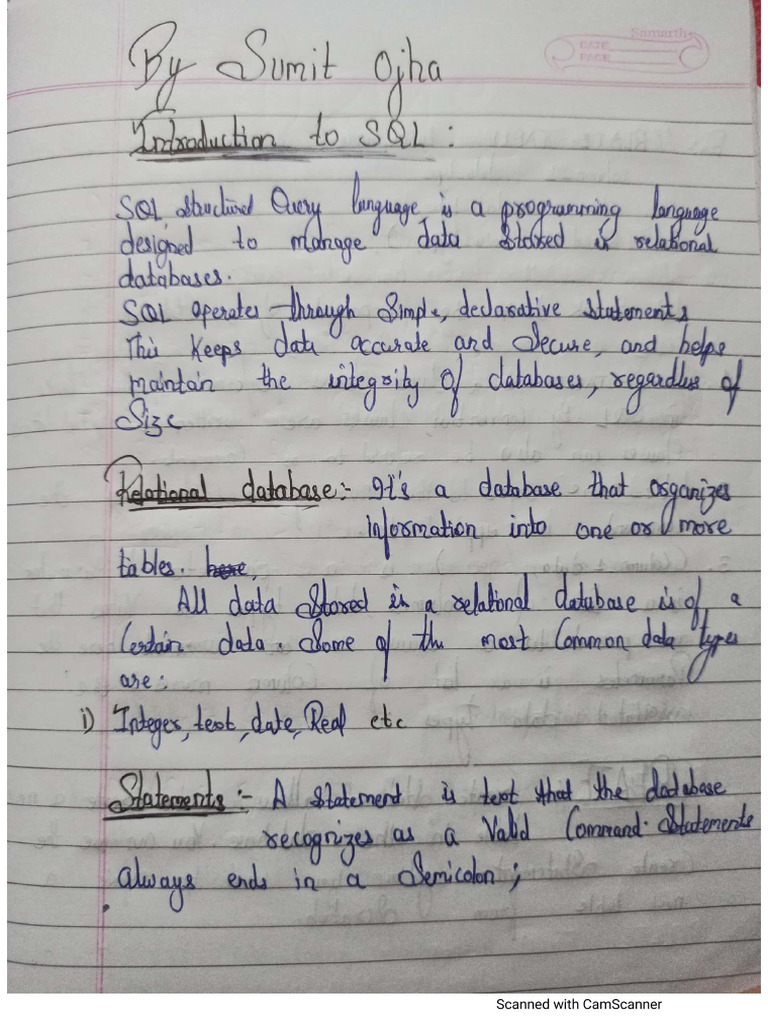 Samarth
DATE
PAGE
By Sumit Ojha
Introduction to SQL :
SQL, Structured Query language is a programming language
designed to manage data stored in relational
databases.
SQL operates through Simple, declarative statements,
This Keeps data accurate and Secure, and helps
maintain the integrity of databases, regardles of
Size
Relational database:- It's a database that organizes
information into one or more
tables. here,
All data Stored in a relational database is of a
Certain data. Some of the most Common data types
are:
i) Integer, text, date, Real etc
Statements:- A statement is text that the database
recognizes as a Valid Command. Statements
always ends in a Semicolon ;
Scanned with CamScanner